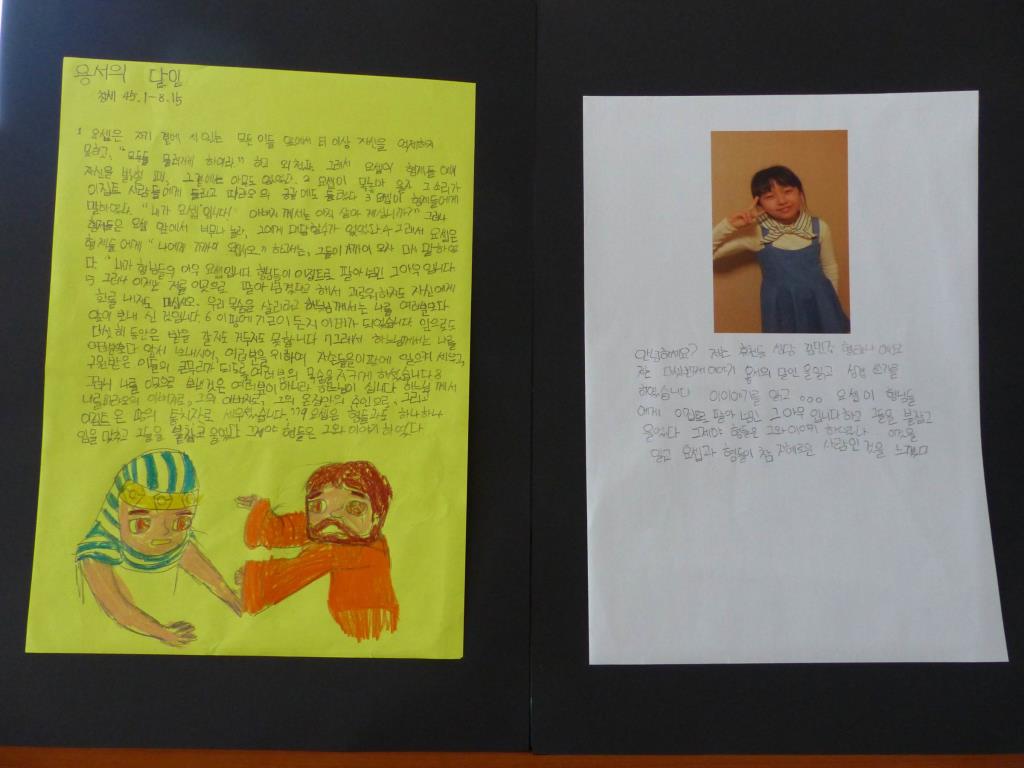 용서의 달인
창세 45,1-8.15
1 요셉은 자기 곁에 서 있는 모든 이들 앞에서 더 이상 자신을 억제하지
못하고, "모두들 물러가게 하여라." 하고 외쳤다. 그래서 요셉이 형제들에게
자신을 밝힐 때, 그 곁에는 아무도 없었다. 2 요셉이 목놓아 울자, 그 소리가
이집트 사람들에게 들리고 파라오의 궁궐에도 들렸다 3 요셉이 형제들에게
말하였다. "내가 요셉입니다! 아버지께서는 아직 살아 계십니까?" 그러나
형제들은 요셉 앞에서 너무나 놀라, 그에게 대답할수가 없었다 4 그래서 요셉은
형제들에게 "나에게 가까이 오십시오." 하고서는, 그들이 가까이 오자 다시 말하였
다. "내가 형님들의 아우 요셉입니다 형님들이 이집트로 팔아넘긴 그 아우입니다
5 그러나 이제는 저를 이곳으로 팔아 넘겼다고 해서 괴로워하지도 자신에게
화를 내지도 마십시오. 우리 목숨을 살리려고 하느님께서는 나를 여러분보다
앞서 보내신 것입니다 6 이 땅에 기근이 든지 이태가 되었습니다 앞으로도
다섯 해 동안은 밭을 갈지도 거두지도 못합니다 7 그래서 하느님께서는 나를
여러분보다 앞서 보내시어, 여러분을 위하여 자손들을 이 땅에 일으켜 세우고,
구원받은 이들의 큰 무리가 되도록 여러분의 목숨을 지키게 하셨습니다 8
그러니 나를 이곳으로 보낸 것은 여러분이 아니라 하느님이십니다 하느님께서
나를 파라오의 아버지로, 그의 온 집안의 주인으로, 그리고
이집트 온 땅의 통치자로 세우셨습니다 15 요셉은 형들과도 하나하나
입을 맞추고 그들을 붙잡고 울었다 그제야 형들은 그와 이야기 하였다
안녕하세요? 저는 성당 입니다
저는 이야기 용서의 달인을 읽고 성경 쓰기를
하였습니다 이 이야기를 읽고 ... 요셉이 형님들
에게 이집트로 팔아 넘긴 그 아우입니다 하고 그들을 붙잡고
울었다 그제야 형들은 그와 이야기 하였다 이것을
읽고 요셉과 형들이 참 지혜로운 사람인 것을 느꼈다